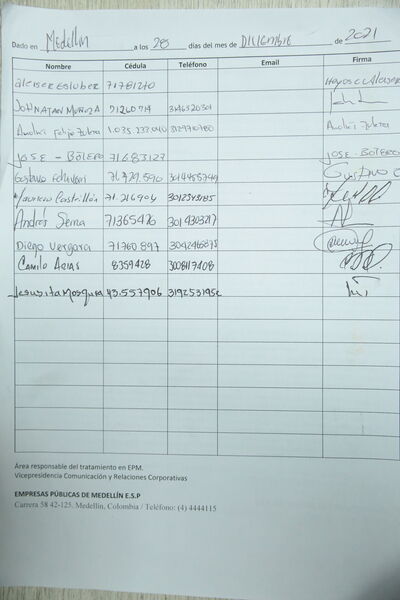 Dado en Medellín a los 28 días del mes de Diciembre de 2021
Nombre Cédula Teléfono Email Firma
71781270
JOHNATAN MUÑOZ 71260714 3146320301
Andrés Felipe Zuleta 1.035.232.040 Andrés Zuleta
JOSE - BOTERO 71683127 JOSE-BOTERO
Gustavo Echavarri 3014455749 Gustavo E
Mauricio Castrillón 71.216904 3012343185
Andrés Serna 71365476 3014303217
Diego Vergara 71760897 304246875
Camilo Arias 8359428 3008117408
Jesusita Mosquera 43.557906 3192531956
Área responsable del tratamiento en EPM.
Vicepresidencia Comunicación y Relaciones Corporativas
EMPRESAS PÚBLICAS DE MEDELLÍN E.S.P
Carrera 58 42-125. Medellín, Colombia / Teléfono: (4) 4444115